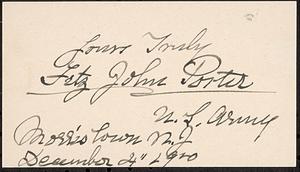 Yours Truly
Fitz John Porter
U. S. Army
Morristown N. J
December 4" 1890